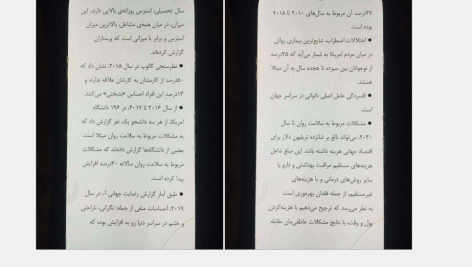 ۲۷درصد آن مربوط به سال‌های ۲۰۱۰ تا ۲۰۱۸
بوده است.
● اختلالات اضطراب، شایع‌ترین بیماری روانی
در میان مردم امریکا به شمار می‌آید که ۲۵درصد
از نوجوانان بین سیزده تا هجده سال به آن مبتلا
هستند.
● افسردگی عامل اصلی ناتوانی در سراسر جهان
است.
● مشکلات مربوط به سلامت روان تا سال
۲۰۳۰، می‌تواند بالغ بر شانزده تریلیون دلار برای
اقتصاد جهانی هزینه داشته باشد. این مبلغ شامل
هزینه‌های مستقیم مراقبت بهداشتی و دارو یا
سایر روش‌های درمانی و یا هزینه‌های
غیرمستقیم، از جمله فقدان بهره‌وری است.
به نظر می‌رسد که ترجیح می‌دهیم با هزینه‌کردن
پول و وقت، با نتایج مشکلات عاطفی‌مان مقابله
سال تحصیلی، استرس روزانه‌ی بالایی دارند. این
میزان، در میان همه‌ی مشاغل، بالاترین میزان
استرس و برابر با میزانی است که پرستاران
گزارش کرده‌اند.
● نظرسنجی گالوپ در سال ۲۰۱۸، نشان داد که
۵۰درصد از کارمندان به کارشان علاقه ندارند و
۱۳درصد این افراد احساس «بدبختی» می‌کنند.
● از سال ۲۰۱۶ تا ۲۰۱۷، در ۱۹۶ دانشگاه
امریکا، از هر سه دانشجو یک نفر گزارش داد که
به مشکلات مربوط به سلامت روان مبتلا است.
بعضی از دانشگاه‌ها گزارش داده‌اند که مشکلات
مربوط به سلامت روان سالانه ۳۰درصد افزایش
پیدا کرده است.
● طبق آمار گزارش رضایت جهانی، در سال
۲۰۱۹، احساسات منفی از جمله نگرانی، ناراحتی
و خشم در سراسر دنیا رو به افزایش بوده که